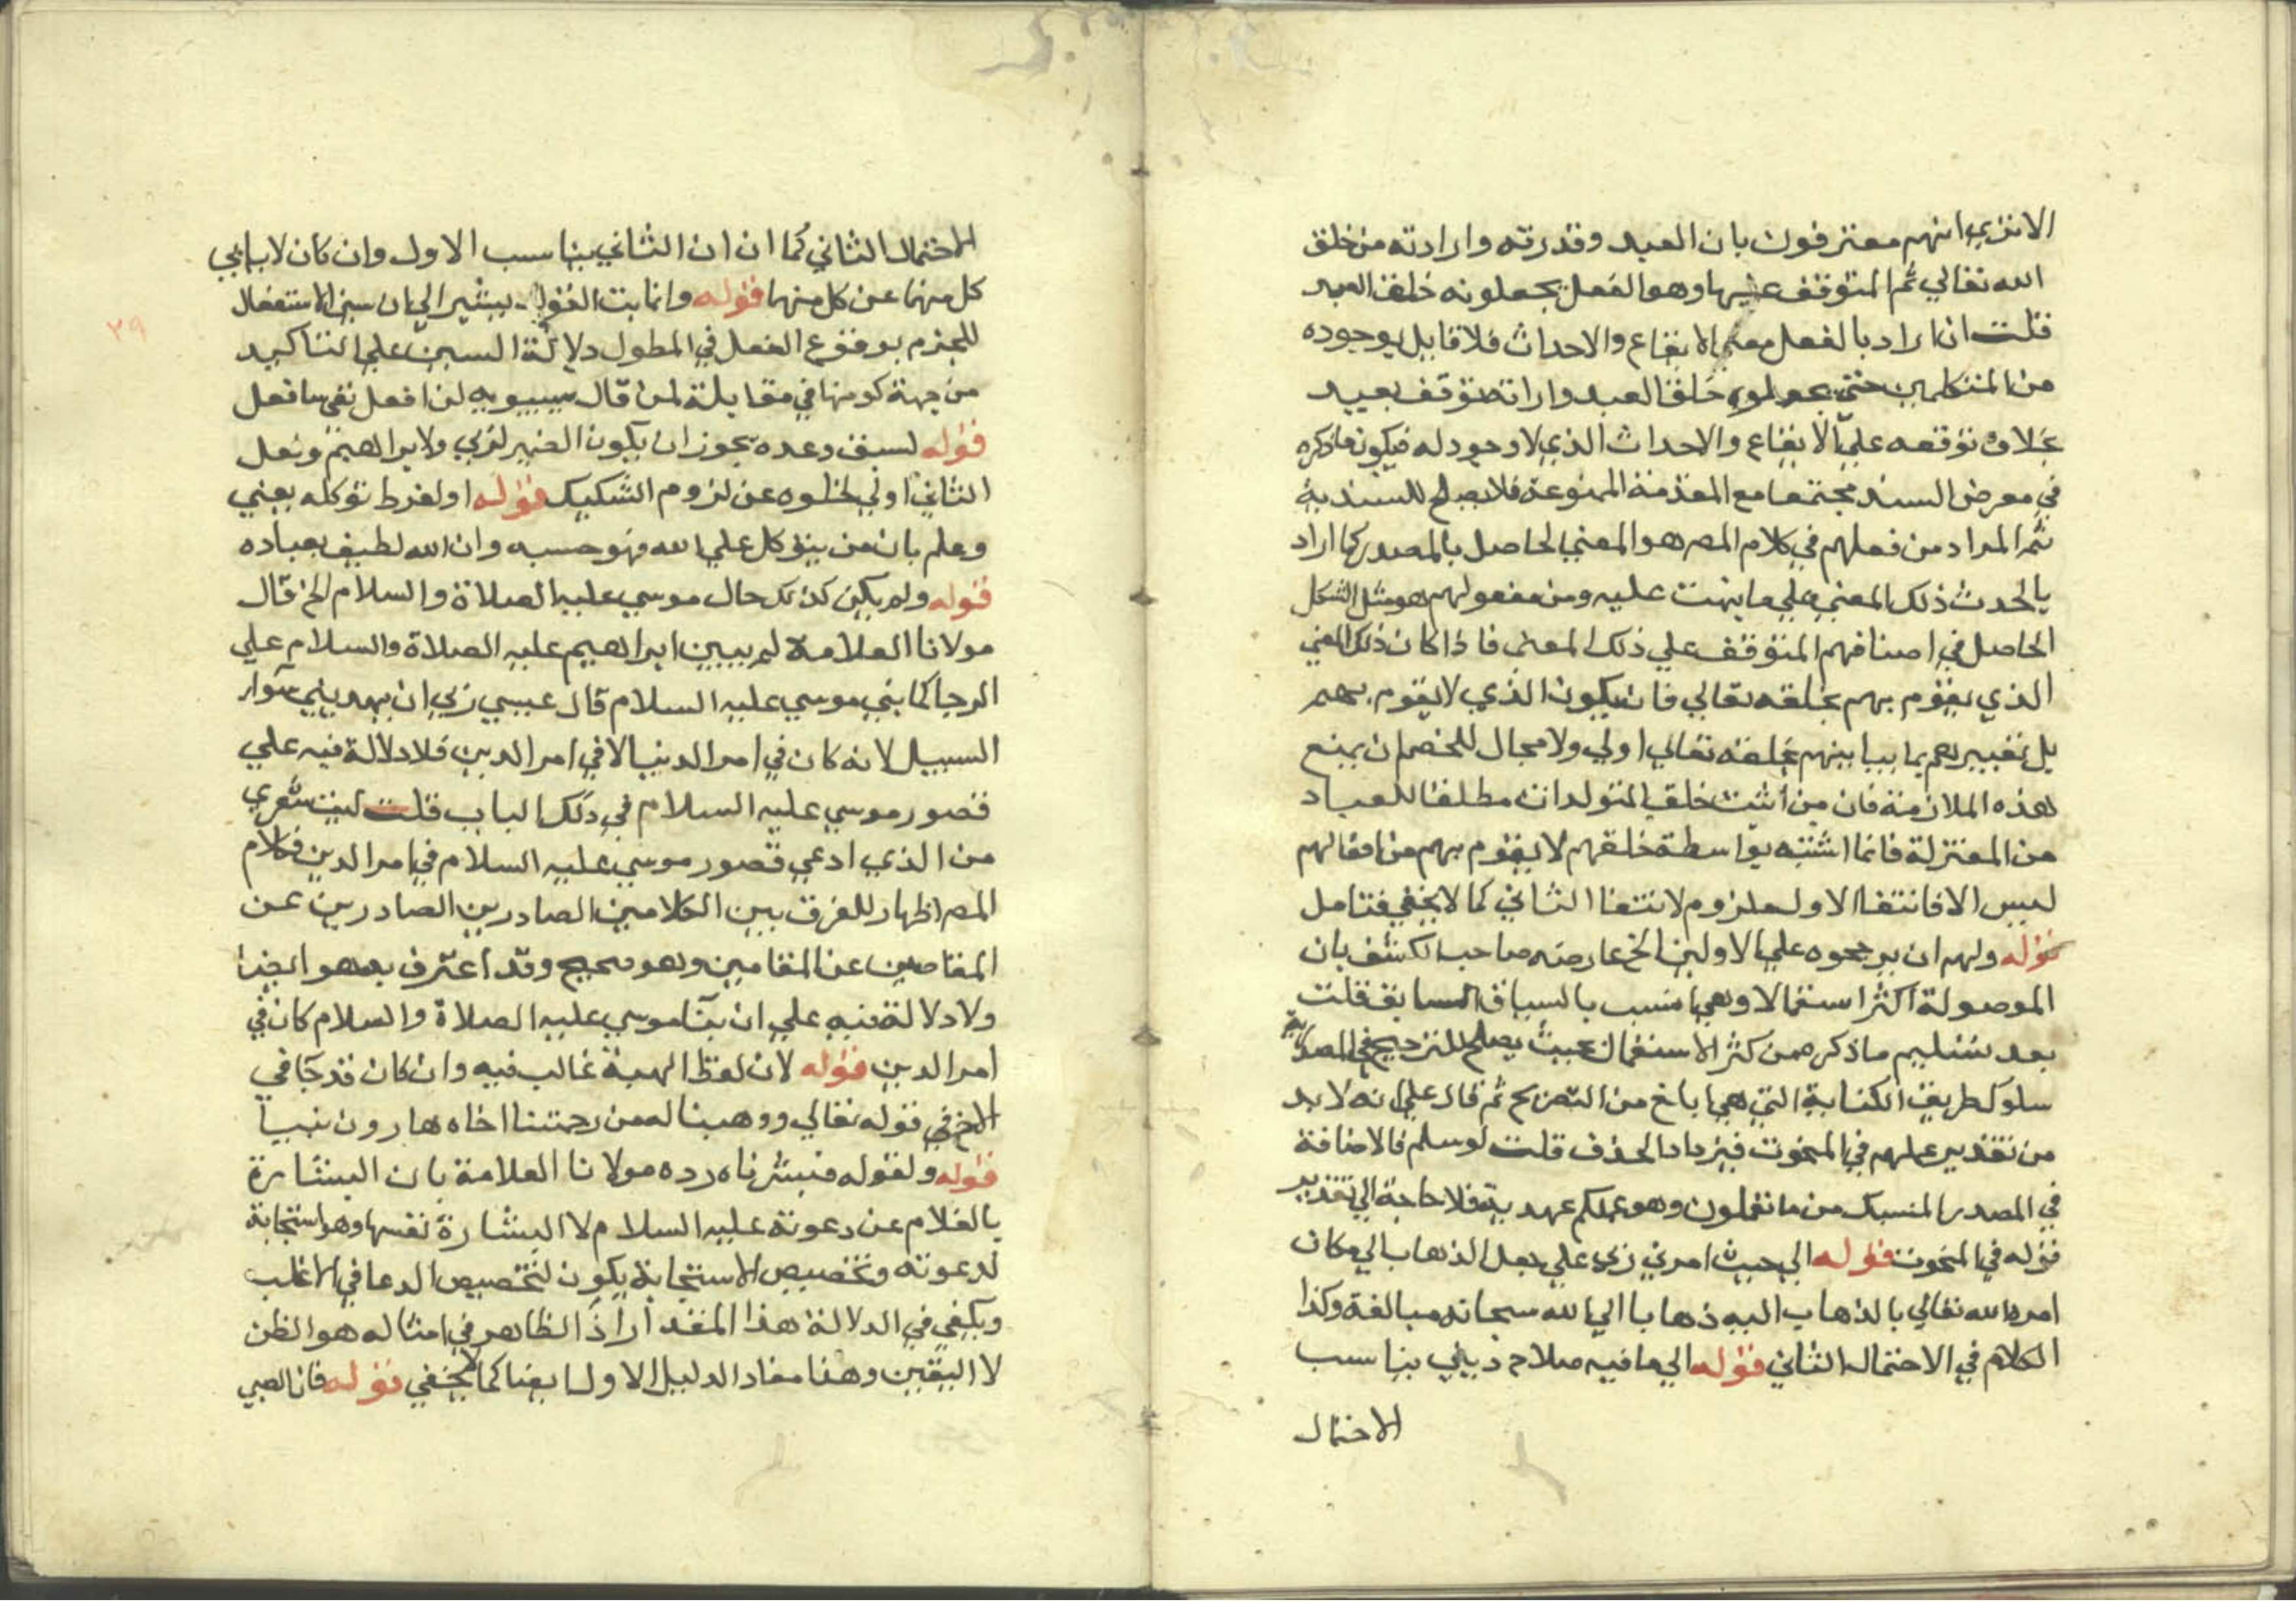 الا نري انهم معترفون بان العبد وقدرته وارادته من خلق
الله تعالي ثم المتوقف عليها وهو الفعل يجعلونه خلق العبد
قلت ان اراد بالفعل معني الايقاع والاحداث فلا قايل بوجوده
من المتكلمين حتي يجعلوه خلق العبد وان اراد توقف بعيد
بخلاف توقفه علي الايقاع والاحداث الذي لا وجود له فيكون ما ذكره
في معرض السند مجتمعا مع المقدمة الممنوعة فلا يصلح للسندية
ثم المراد من فعلهم في كلام المص هو المعني الحاصل بالمصدر كما اراد
بالحدث ذلك المعني علي ما ينهت عليه ومن مفعولهم هو مثل الشكل
الحاصل في اصنافهم المتوقف علي ذلك المعني فاذا كان ذلك المعني
الذي يقوم بهم بخلقه تعالي فان يكون الذي لا يقوم بهم
بل تغييرهم بما يباينهم بخلقه تعالي اولي ولا مجال للخصم ان يمنع
هذه الملازمة فان من أثبت خلق المتولدات مطلقا للعباد
من المعتزلة فانما اثبته بواسطة خلقهم لا يقوم بهم من افعالهم
ليس الا فانتفا الاول ملزوم لانتفا الثاني كما لا يخفي فتامل
قوله ولهم ان يرجحوه علي الاولين الخ عارضه صاحب الكشف بان
الموصولة اكثر استعمالا وهي انسب بالسياق السابق قلت
بعد تسليم ما ذكره من كثر الاستعمال بحيث يصلح للترجيح في المصدرية
سلوك طريق الكناية التي هي ابلغ من التصريح ثم قال علي انه لا بد
من تقدير عملهم في المنحوت فيزداد الحذف قلت لو سلم فالاضافة
في المصدر المنسبك من ما تعملون وهو عملكم عهدية فلا حاجة الي تقدير
قوله في المنحوت قوله الي حيث امرني ربي علي جعل الذهاب الي مكان
امره الله تعالي بالذهاب اليه ذهابا الي الله سبحانه مبالغة وكذا
الكلام في الاحتمال الثاني قوله الي ما فيه صلاح ديني يناسب
الاحتمال
الاحتمال الثاني كما ان ان الثاني يناسب الاول وان كان لا يابي
كل منهما عن كل منهما قوله وانما بت القول يشير الي ان سين الاستقبال
للجزم بوقوع الفعل في المطول دلالة السين علي التاكيد
من جهة كونها في مقابلة لن قال سيبويه لن افعل نفي سافعل
قوله لسبق وعده يجوز ان يكون الضمير لربي ولابراهيم ولعل
الثاني اولي لخلوه عن لزوم التفكيك قوله او لفرط توكله يعني
وعلم بان من يتوكل علي الله فهو حسبه وان الله لطيف بعباده
قوله ولم يكن كذلك حال موسي عليه الصلاة والسلام الخ قال
مولانا العلامة لم يبين ابراهيم عليه الصلاة والسلام علي
الرجا كما بني موسي عليه السلام قال عيسي ربي ان يهديني سواء
السبيل لانه كان في امر الدنيا لا في امر الدين فلا دلالة فيه علي
قصور موسي عليه السلام في ذلك الباب قلت ليت شعري
من الذي ادعي قصور موسي عليه السلام في امر الدين فكلام
المص اظهار للفرق بين الكلامين الصادرين الصادرين عن
المقامين عن المقامين وهو صحيح وقد اعترف به هو ايضا
ولا دلالة فيه علي ان بنآ موسي عليه الصلاة والسلام كان في
امر الدين قوله لان لفظ الهبة غالب فيه وان كان قد جآ في
الاخ في قوله تعالي ووهبنا له من رحمتنا اخاه هارون نبيا
قوله ولقوله فبشرناه رده مولانا العلامة بان البشارة
بالغلام عن دعوته عليه السلام لا البشارة نفسها وهو استجابة
لدعوته وتخصيص الاستجابة يكون لتخصيص الدعا في الاغلب
ويكفي في الدلالة هذا المقدار اذ الظاهر في امثاله هو الظن
لا اليقين وهذا مفاد الدليل الاول ايضا كما لا يخفي قوله فان الصبي
٣٩